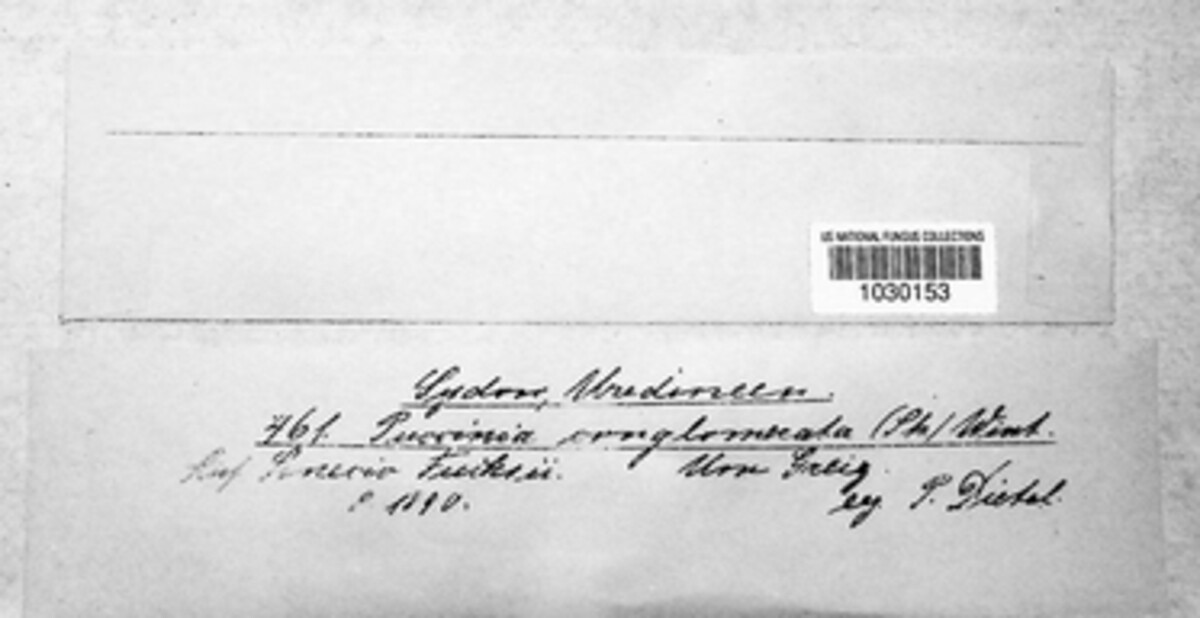 US NATIONAL FUNGUS COLLECTIONS
1030153
Sydow, Uredineen.
461. Puccinia conglomerata (Str) Wint.
Auf Senecio Fuchsii. Um Greiz.
1890. leg. P. Dietel.